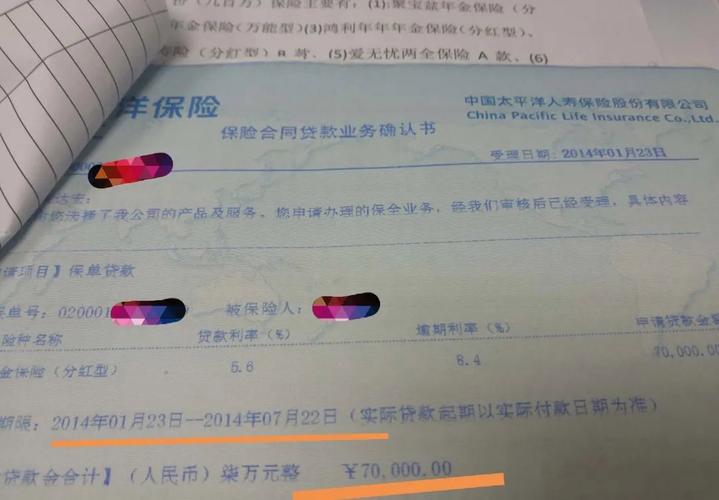 份（九百万）保险主要有：(1)聚宝盆年金保险（分
年金保险（万能型）(3)鸿利年年年金保险（分红型）、
寿险（分红型）B 款、(5)爱无忧两全保险 A 款、(6)
洋保险
中国太平洋人寿保险股份有限公司
China Pacific Life Insurance Co.,Ltd.
保险合同贷款业务确认书
受理日期：2014年01月23日
您选择了我公司的产品及服务。您申请办理的保全业务，经我们审核后已经受理，具体内容
请项目】保单贷款
单号：020001
被保险人：
险种名称 贷款利率（%） 逾期利率（%） 申请贷款金额
金保险（分红型） 5.6 8.4 70,000.00
期限：2014年01月23日--2014年07月22日（实际贷款起期以实际付款日期为准）
贷款金合计】（人民币）柒万元整 ￥70,000.00